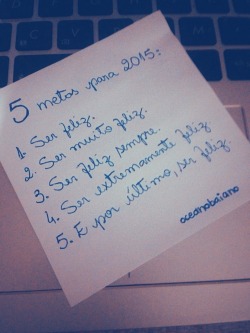 5 metas para 2015:
1. Ser feliz.
2. Ser muito feliz.
3. Ser feliz sempre.
4. Ser extremamente feliz.
5. E por último, ser feliz.
oceanobaiano